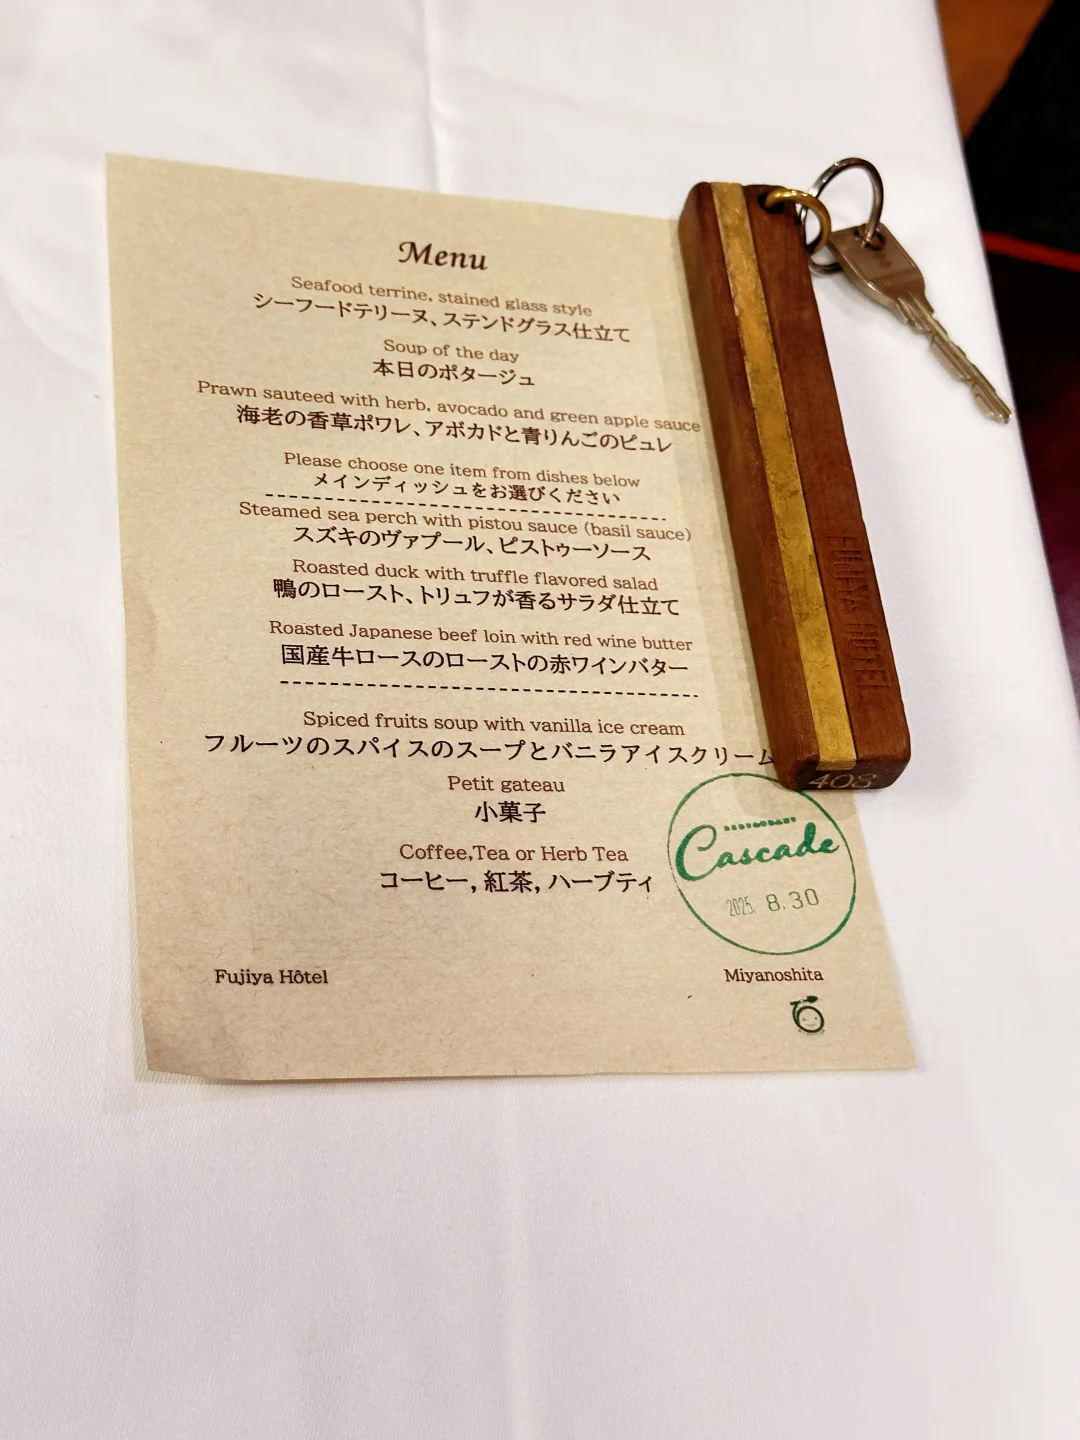 Menu
Seafood terrine, stained glass style
シーフードテリーヌ、ステンドグラス仕立て
Soup of the day
本日のポタージュ
Prawn sauteed with herb, avocado and green apple sauce
海老の香草ポワレ、アボカドと青りんごのピュレ
Please choose one item from dishes below
メインディッシュをお選びください
Steamed sea perch with pistou sauce (basil sauce)
スズキのヴァプール、ピストゥーソース
Roasted duck with truffle flavored salad
鴨のロースト、トリュフが香るサラダ仕立て
Roasted Japanese beef loin with red wine butter
国産牛ロースのローストの赤ワインバター
Spiced fruits soup with vanilla ice cream
フルーツのスパイスのスープとバニラアイスクリーム
Petit gateau
小菓子
Coffee,Tea or Herb Tea
コーヒー, 紅茶, ハーブティ
RESTAURANT
Cascade
2025. 8.30
Fujiya Hôtel
Miyanoshita
FUJIYA HOTEL
403